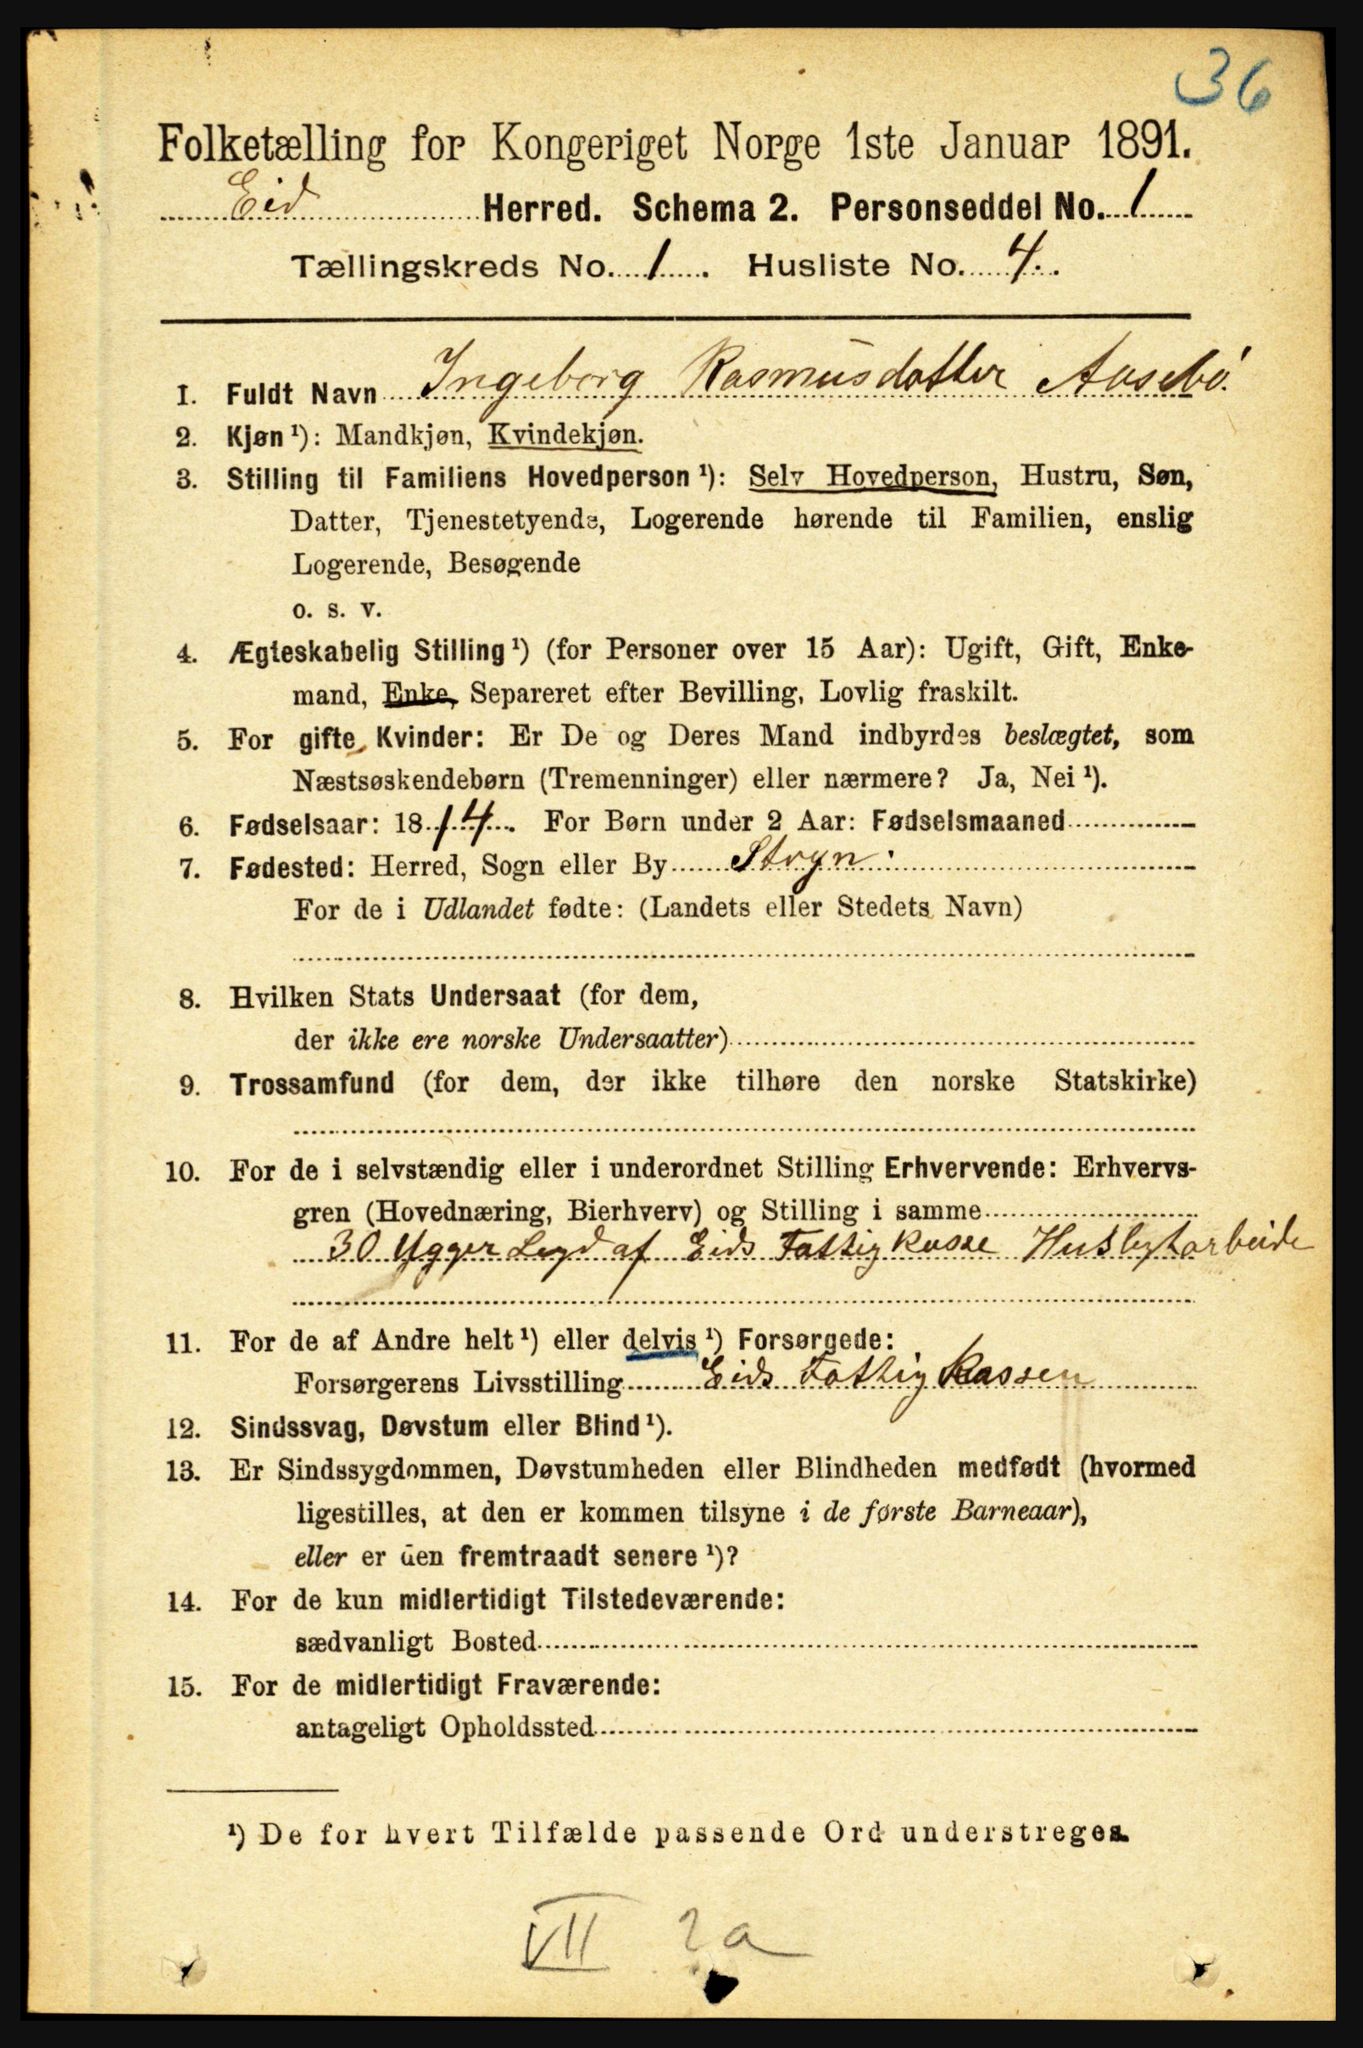 36
Folketælling for Kongeriget Norge 1ste Januar 1891.
Eid Herred. Schema 2. Personseddel No. 1
Tællingskreds No. 1. Husliste No. 4.
1. Fuldt Navn Ingeborg Rasmusdatter Aasebö.
2. Kjøn ¹): Mandkjøn, Kvindekjøn.
3. Stilling til Familiens Hovedperson ¹): Selv Hovedperson, Hustru, Søn,
Datter, Tjenestetyende, Logerende hørende til Familien, enslig
Logerende, Besøgende
o. s. v.
4. Ægteskabelig Stilling ¹) (for Personer over 15 Aar): Ugift, Gift, Enke-
mand, Enke, Separeret efter Bevilling, Lovlig fraskilt.
5. For gifte Kvinder: Er De og Deres Mand indbyrdes beslægtet, som
Næstsøskendebørn (Tremenninger) eller nærmere? Ja, Nei ¹).
6. Fødselsaar: 1814. For Børn under 2 Aar: Fødselsmaaned
7. Fødested: Herred, Sogn eller By Stryn.
For de i Udlandet fødte: (Landets eller Stedets Navn)
8. Hvilken Stats Undersaat (for dem,
der ikke ere norske Undersaatter)
9. Trossamfund (for dem, der ikke tilhøre den norske Statskirke)
10. For de i selvstændig eller i underordnet Stilling Erhvervende: Erhvervs-
gren (Hovednæring, Bierhverv) og Stilling i samme
30 Legd af Eids Fattigkasse
11. For de af Andre helt ¹) eller delvis ¹) Forsørgede:
Forsørgerens Livsstilling Eids Fattigkassen
12. Sindssvag, Døvstum eller Blind ¹).
13. Er Sindssygdommen, Døvstumheden eller Blindheden medfødt (hvormed
ligestilles, at den er kommen tilsyne i de første Barneaar),
eller er den fremtraadt senere ¹)?
14. For de kun midlertidigt Tilstedeværende:
sædvanligt Bosted
15. For de midlertidigt Fraværende:
antageligt Opholdssted
¹) De for hvert Tilfælde passende Ord understreges.
VII 2a